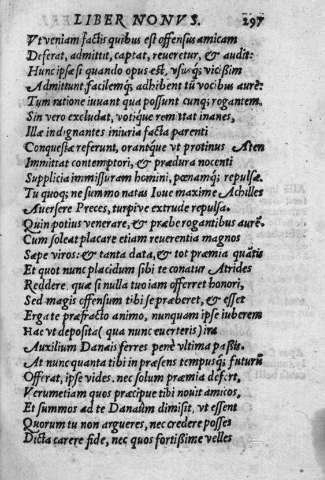 LIBER NONVS. 297
Vt veniam factis quibus est offensus amicam
Deferat, admittit, captat, reueretur, & audit:
Hunc ipsæ si quando opus est, vsuq; vicißim
Admittunt facilemq; adhibent tū vocibus aurē.
Tum ratione iuuant qua possunt cunq; rogantem.
Sin vero excludat, votique remittat inanes,
Illæ indignantes iniuria facta parenti
Conquestæ referunt, orantque vt protinus Aten
Immittat contemptori, & prædura nocenti
Supplicia immissuram homini, pœnamq; repulsæ.
Tu quoq; ne summo natas Ioue maxime Achilles
Auersere Preces, turpive extrude repulsa.
Quin potius venerare, & præbe rogantibus aurē.
Cum soleat placare etiam reuerentia magnos
Sæpe viros: & tanta data, & tot præmia quātis
Et quot nunc placidum sibi te conatur Atrides
Reddere. quæ si nulla tuo iam offerret honori,
Sed magis offensum tibi se præberet, & esset
Erga te præfracto animo, nunquam ipse iuberem
Hac vt deposita (qua nunc euerteris) ira
Auxilium Danais ferres penè vltima paßis.
At nunc quanta tibi in præsens tempusq; futurū
Offerat, ipse vides. nec solum præmia defert,
Verumetiam quos præcipue tibi nouit amicos,
Et summos ad te Danaūm dimisit, vt essent
Quorum tu non argueres, nec credere posses
Dicta carere fide, nec quos fortißime velles